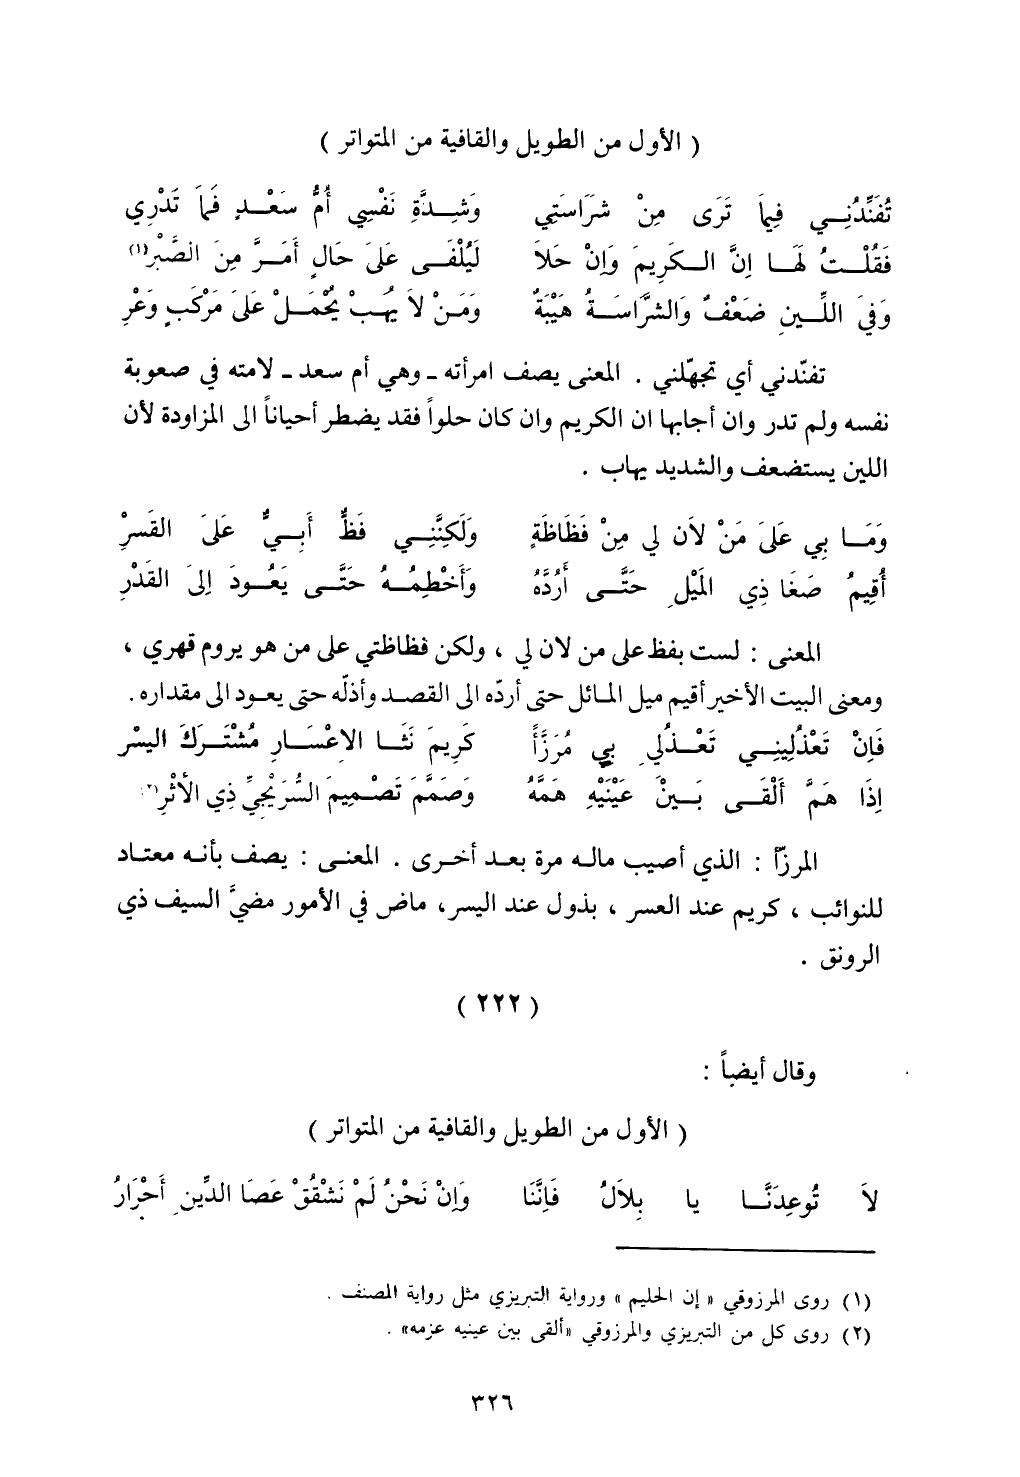 ( الأول من الطويل والقافية من المتواتر )
تُفَنِّدُنِي فِيمَا تَرَى مِنْ شَرَاسَتِي وَشِدَّةِ نَفْسِي أُمُّ سَعْدٍ فَمَا تَدْرِي
فَقُلْتُ لَهَا إِنَّ الكَرِيمَ وَإِنْ حَلَا لَيُلْفَى عَلَى حَالٍ أَمَرَّ مِنَ الصَّبْرِ(١)
وَفِي اللِّينِ ضَعْفٌ وَالشَّرَاسَةُ هَيْبَةٌ وَمَنْ لَا يُهَبْ يُحْمَلْ عَلَى مَرْكَبٍ وَعْرِ
تفنّدني أي تجهّلني . المعنى يصف امرأته ـ وهي أم سعد ـ لامته في صعوبة
نفسه ولم تدر وان أجابها ان الكريم وان كان حلواً فقد يضطر أحياناً الى المزاودة لأن
اللين يستضعف والشديد يهاب .
وَمَا بِي عَلَى مَنْ لَان لِي مِنْ فَظَاظَةٍ وَلَكِنَّنِي فَظٌّ أَبِيٌّ عَلَى القَسرْ
أُقِيمُ صَغَا ذِي المَيْلِ حَتَّى أَرُدَّهُ وَأَخْطِمُهُ حَتَّى يَعُودَ إِلَى القَدْرِ
المعنى : لست بفظ على من لان لي ، ولكن فظاظتي على من هو يروم قهري ،
ومعنى البيت الأخير أقيم ميل المائل حتى أردّه الى القصد وأذلّه حتى يعود الى مقداره .
فَإِنْ تَعْذُلِينِي تَعْذُلِي بِي مُرَزَّأً كَرِيمَ نَثَا الإِعْسَارِ مُشْتَرَكَ اليسْر
إِذَا هَمَّ أَلْقَى بَيْنَ عَيْنَيْهِ هَمَّهُ وَصَمَّمَ تَصْمِيمَ السُّرَيْجِيِّ ذِي الأَثْرِ(٢)
المرزّأ : الذي أصيب ماله مرة بعد أخرى . المعنى : يصف بأنه معتاد
للنوائب ، كريم عند العسر ، بذول عند اليسر، ماض في الأمور مضيَّ السيف ذي
الرونق .
( ٢٢٢ )
وقال أيضاً :
( الأول من الطويل والقافية من المتواتر )
لَا تُوعِدَنَّا يا بِلَالُ فَإِنَّنَا وَإِنْ نَحْنُ لَمْ نَشْقُقْ عَصَا الدِّينِ أَحْرَارُ
(١) روى المرزوقي « إن الحليم » ورواية التبريزي مثل رواية المصنف .
(٢) روى كل من التبريزي والمرزوقي «ألقى بين عينيه عزمه» .
٣٢٦